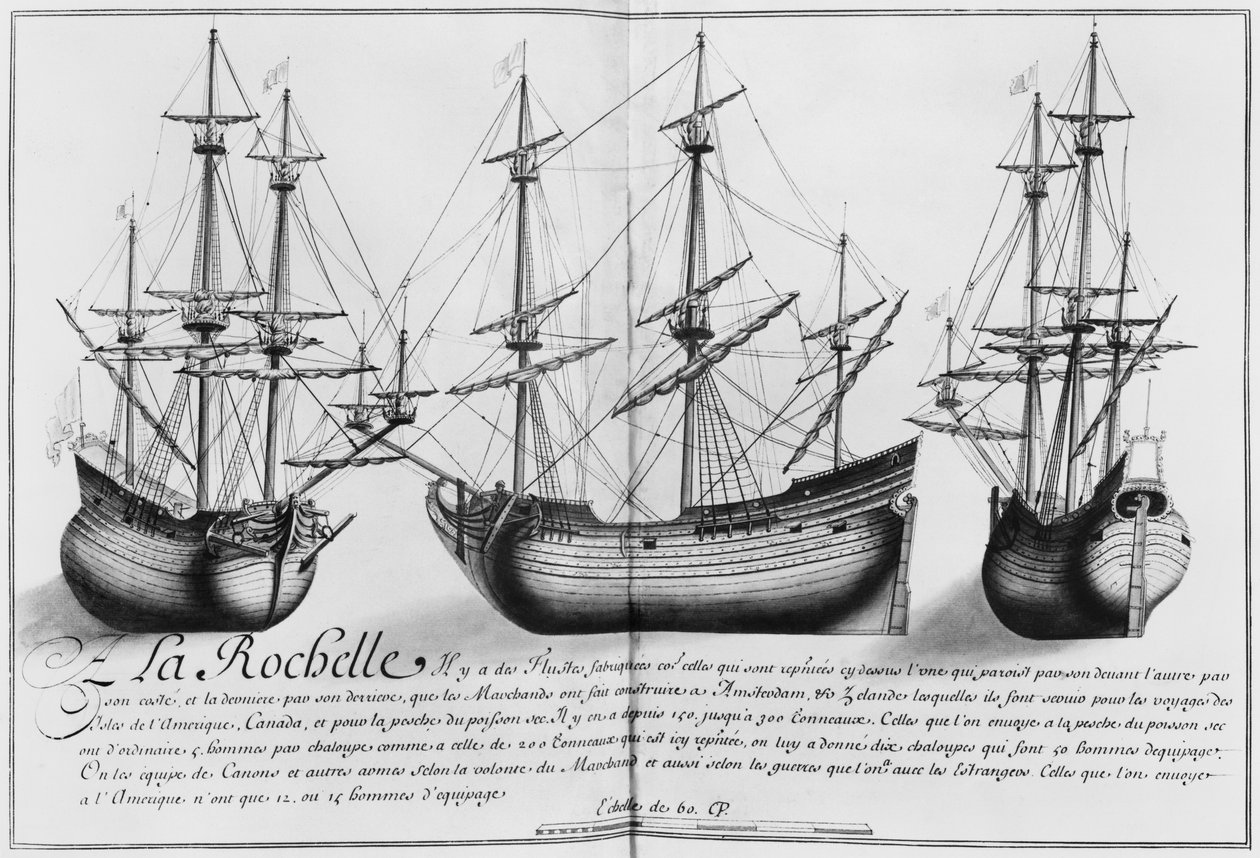 A La Rochelle Il y a des Flustes fabriquées coe. celles qui sont repñtées cy dessus l'vne qui paroist par son deuant l'autre par
son costé, et la derniere par son derriere, que les Marchands ont fait construire a Amsterdam, & Zelande lesquelles ils font seruir pour les voyages des
Isles de l'Amerique, Canada, et pour la pesche du poisson sec. Il y en a depuis 150. jusqu'a 300 tonneaux. Celles que l'on enuoye a la pesche du poisson sec
ont d'ordinaire 5. hommes par chaloupe comme a celle de 200 tonneaux qui est icy repñtée, on luy a donné dix chaloupes qui font 50 hommes dequipage.
On les équipe de Canons et autres armes selon la volonte du Marchand et aussi selon les guerres que l'on a auec les Estrangers. Celles que l'on enuoye
a l'Amerique n'ont que 12. ou 15 hommes d'equipage
Echelle de 60. P.